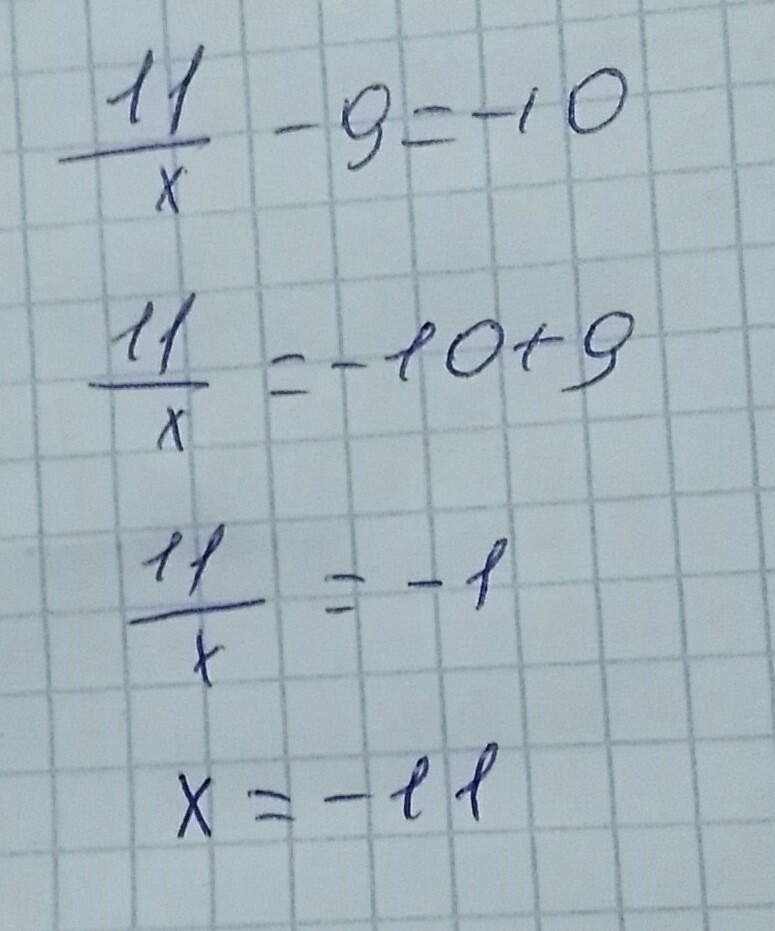 11/x - 9 = -10
11/x = -10 + 9
11/x = -1
x = -11